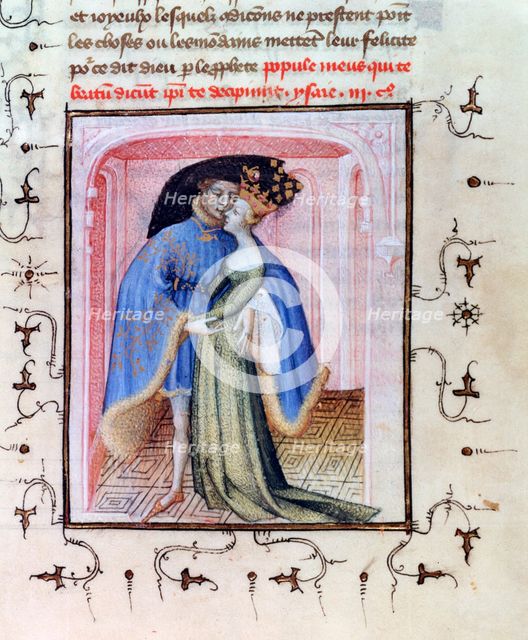 et ioyeuso lesquelz ꝯdicons ne prestent point
les choses ou les mondains mettent leur felicite
po᷑ce dit dieu ꝑ le ꝓphete popule meus qui te
beatum dicunt ipi te decipiunt. ysaie. iii. c.
Heritage Heritage
Heritage Heritage Heritage
Heritage Heritage
Heritage Heritage
©